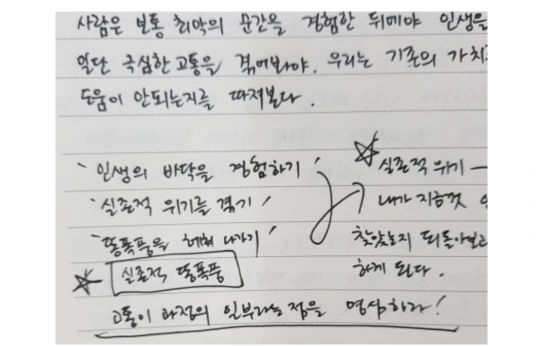 사람은 보통 최악의 순간을 경험한 뒤에야 인생을
일단 극심한 고통을 겪어봐야, 우리는 기존의 가치
도움이 안되는지를 따져본다.
`인생의 바닥을 경험하기'
`실존적 위기를 겪기'
`똥폭풍을 헤쳐 나가기'
실존적 똥폭풍
실존적 위기 —
내가 지금껏
찾았는지 되돌아보고
하게 된다.
고통이 과정의 일부라는 점을 명심하라!